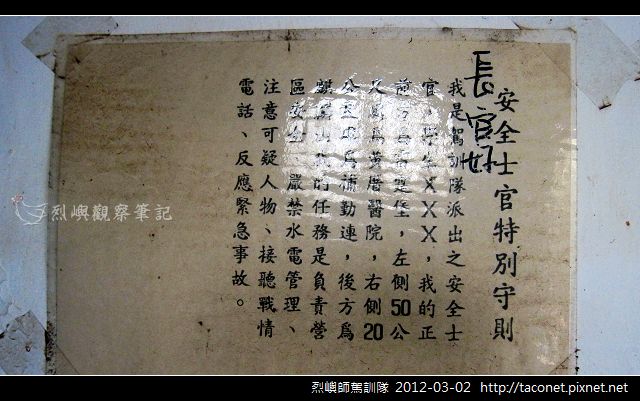 安全士官特別守則
長官好
我是駕訓隊派出之安全士
官，學生XXX，我的正
前方為堡，左側50公
尺處為黃厝醫院，右側20
公尺處為補勤連，後方為
麒麟山我的任務是負責營
區安全、嚴禁水電管理、
注意可疑人物、接聽戰情
電話、反應緊急事故。
烈嶼觀察筆記
烈嶼師駕訓隊 2012-03-02 http://taconet.pixnet.net